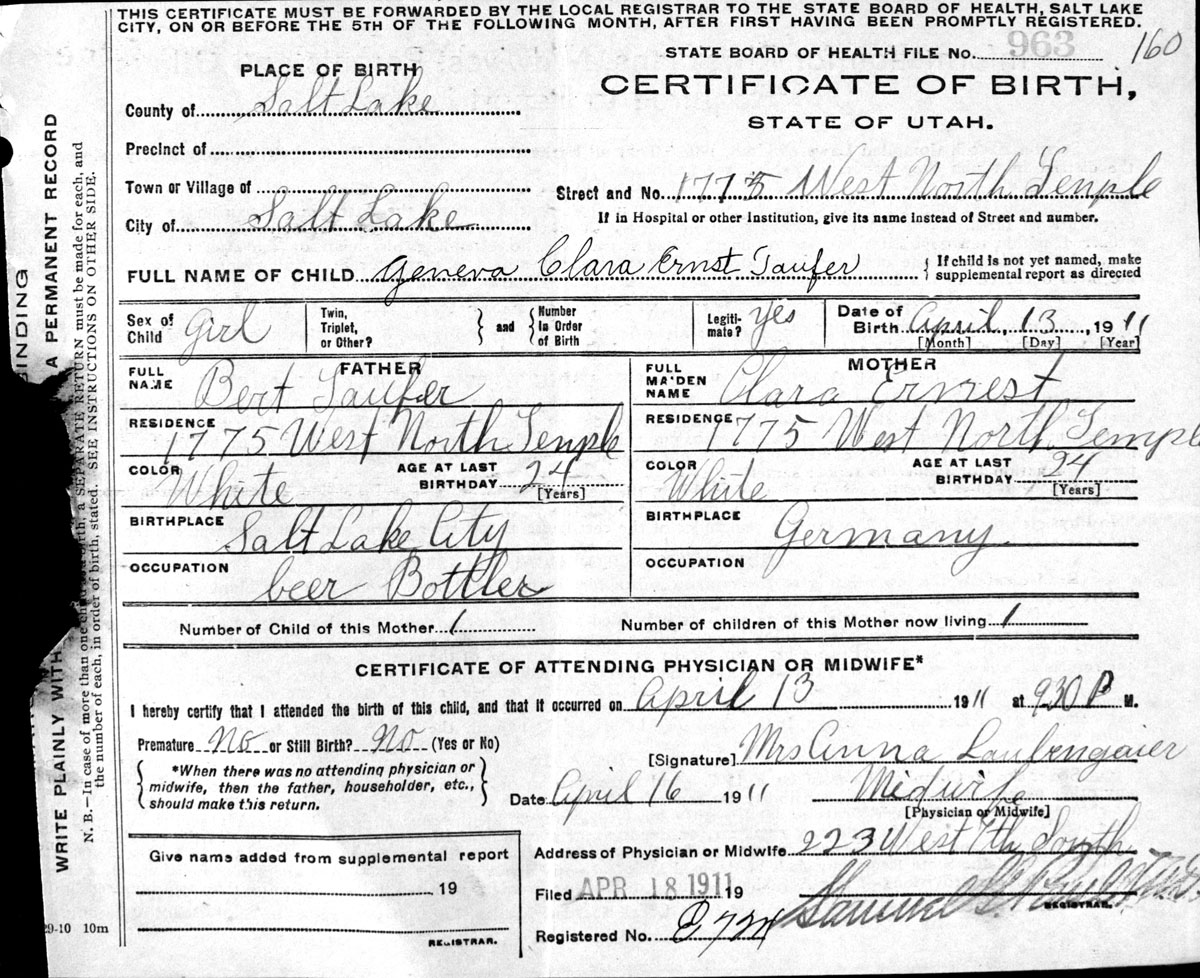 THIS CERTIFICATE MUST BE FORWARDED BY THE LOCAL REGISTRAR TO THE STATE BOARD OF HEALTH, SALT LAKE
CITY, ON OR BEFORE THE 5TH OF THE FOLLOWING MONTH, AFTER FIRST HAVING BEEN PROMPTLY REGISTERED.
STATE BOARD OF HEALTH FILE No. 963 160
PLACE OF BIRTH
CERTIFICATE OF BIRTH,
STATE OF UTAH.
County of Salt Lake
Precinct of
Town or Village of
Street and No. 1775 West North Temple
City of Salt Lake
If in Hospital or other Institution, give its name instead of Street and number.
FULL NAME OF CHILD Geneva Clara Ernst Taufer { If child is not yet named, make
supplemental report as directed
Sex of Child Girl Twin, Triplet, or Other? } and { Number in Order of Birth Legiti-mate? Yes Date of Birth April, 13, 1911
[Month] [Day] [Year]
FATHER
FULL NAME Bert Taufer
RESIDENCE 1775 West North Temple
COLOR White AGE AT LAST BIRTHDAY 24 [Years]
BIRTHPLACE Salt Lake City
OCCUPATION beer Bottler
MOTHER
FULL MAIDEN NAME Clara Ernest
RESIDENCE 1775 West North Temple
COLOR White AGE AT LAST BIRTHDAY 24 [Years]
BIRTHPLACE Germany.
OCCUPATION
Number of Child of this Mother 1 Number of children of this Mother now living 1
CERTIFICATE OF ATTENDING PHYSICIAN OR MIDWIFE*
I hereby certify that I attended the birth of this child, and that it occurred on April 13 1911 at 930 P M.
Premature No or Still Birth? No (Yes or No)
[Signature] Mrs Anna Laufengaier
{ *When there was no attending physician or
midwife, then the father, householder, etc.,
should make this return. }
Date April 16 1911 Midwife
[Physician or Midwife]
Give name added from supplemental report
19
REGISTRAR.
Address of Physician or Midwife 223 West 7th South
Filed APR 18 1911 19 Samuel
REGISTRAR.
Registered No.
29-10 10m
BINDING
A PERMANENT RECORD
WRITE PLAINLY WITH
N. B.—In case of more than one child birth, a SEPARATE RETURN must be made for each, and
the number of each, in order of birth, stated. SEE INSTRUCTIONS ON OTHER SIDE.